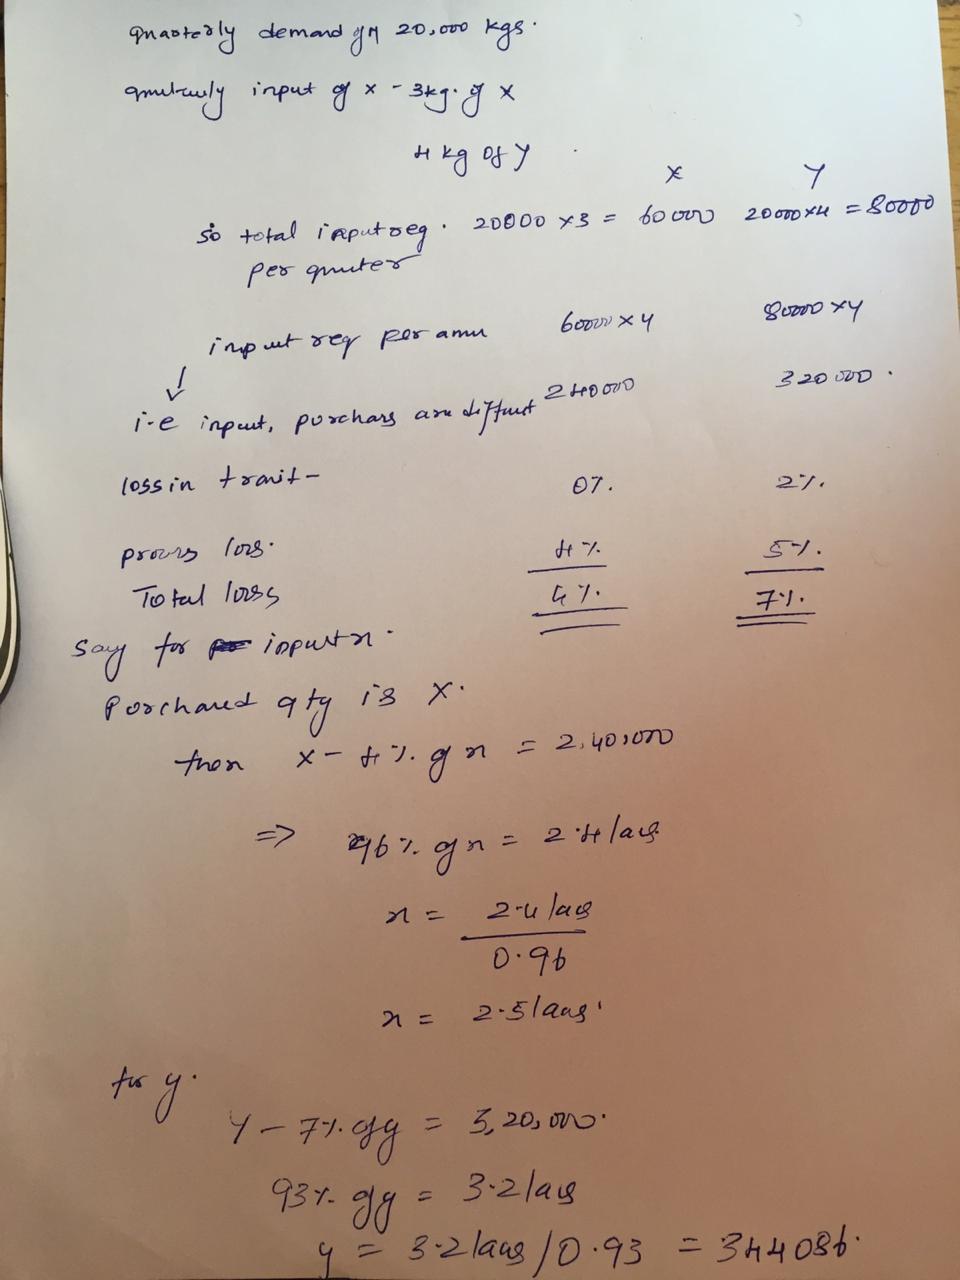 quarterly demand of M 20,000 kgs.
quarterly input of x - 3kg. of x
4 kg of y
X Y
so total input req. 20000 x3 = 60000 20000x4 = 80000
per quter
input req per annu 60000 x 4 80000 x4
i.e input, purchars are diffrent 240000 320000.
loss in transit - 0%. 2%.
process loss. 4% 5%.
Total loss 4%. 7%.
Say for input x.
Purchased qty is x.
then x - 4%. of x = 2,40,000
=> 96% of x = 2.4 lacs
x = 2.4 lacs
0.96
x = 2.5 lacs.
for y.
Y - 7%. of y = 3,20,000.
93% of y = 3.2 lacs
y = 3.2 lacs / 0.93 = 344086.